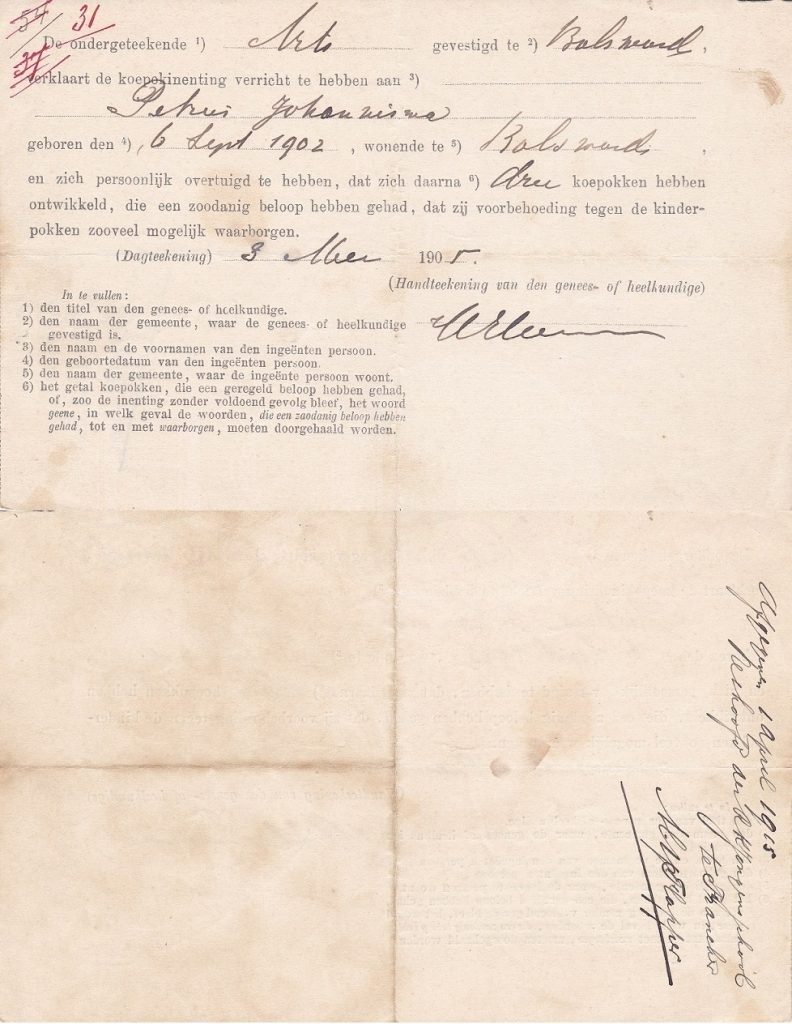 54/ 31
De ondergeteekende 1) Arts gevestigd te 2) Bolsward,
verklaart de koepokinenting verricht te hebben aan 3)
Petrus Johannisma
geboren den 4), 6 Sept 1902, wonende te 5) Bolsward,
en zich persoonlijk overtuigd te hebben, dat zich daarna 6) drie koepokken hebben
ontwikkeld, die een zoodanig beloop hebben gehad, dat zij voorbehoeding tegen de kinder-
pokken zooveel mogelijk waarborgen.
(Dagteekening) 3 Mei 1905.
(Handteekening van den genees- of heelkundige)
In te vullen:
1) den titel van den genees- of heelkundige.
2) den naam der gemeente, waar de genees- of heelkundige
gevestigd is.
3) den naam en de voornamen van den ingeënten persoon.
4) den geboortedatum van den ingeënten persoon.
5) den naam der gemeente, waar de ingeënte persoon woont.
6) het getal koepokken, die een geregeld beloop hebben gehad,
of, zoo de inenting zonder voldoend gevolg bleef, het woord
geene, in welk geval de woorden, die een zoodanig beloop hebben
gehad, tot en met waarborgen, moeten doorgehaald worden.
Afgegeven 1 April 1915
Het hoofd der R K Jongensschool
te Franeker